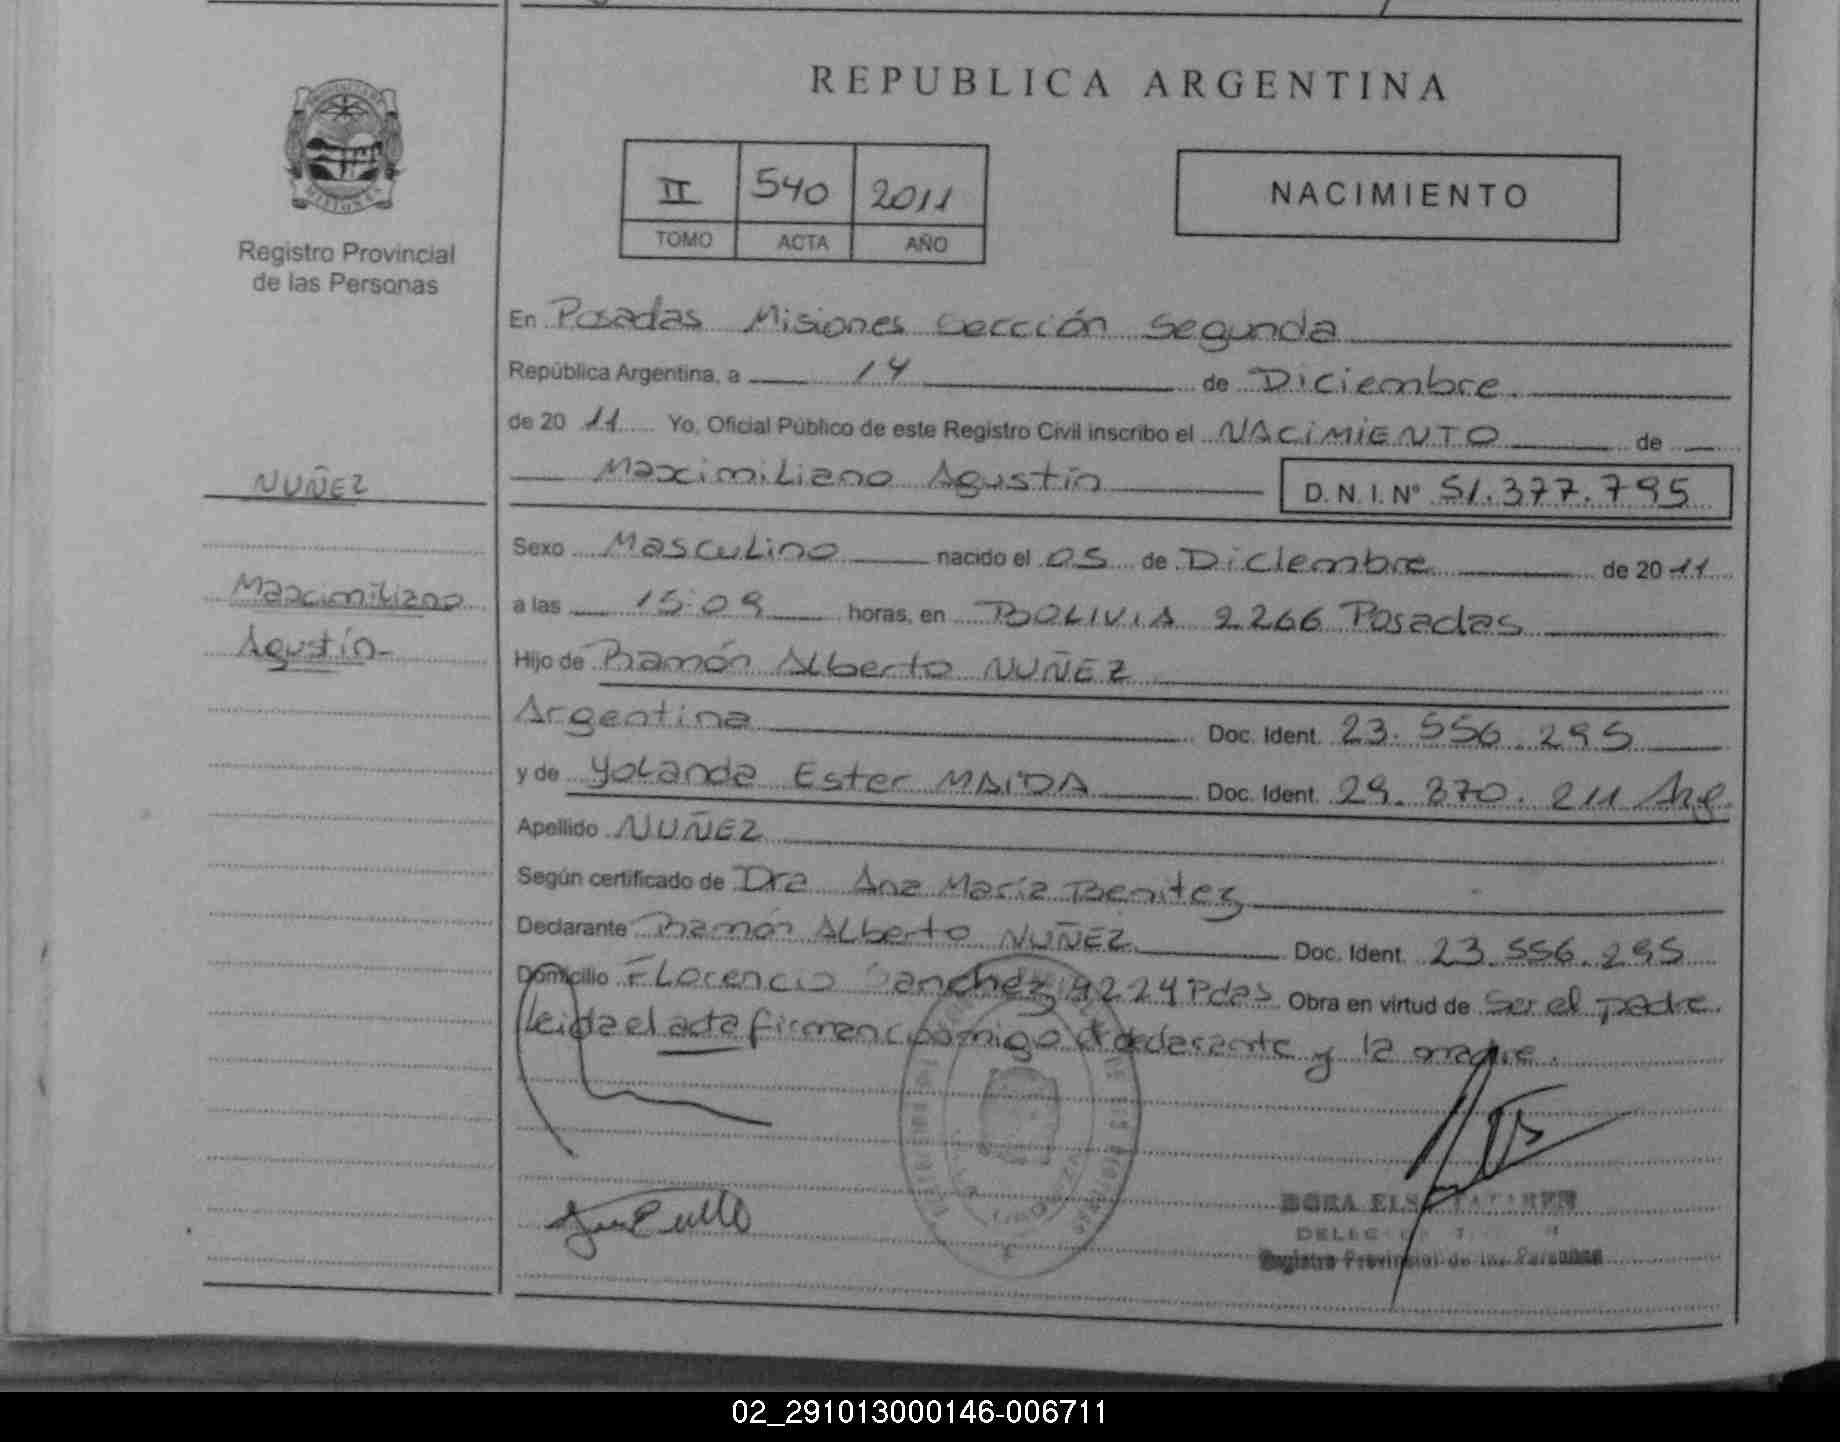 REPUBLICA ARGENTINA
Registro Provincial
de las Personas
II 540 2011
TOMO ACTA AÑO
NACIMIENTO
En Posadas Misiones Sección Segunda
República Argentina, a 14 de Diciembre
de 20 11 Yo, Oficial Público de este Registro Civil inscribo el NACIMIENTO de
NUÑEZ
Maximiliano Agustín D.N.I.Nº 51.377.795
Sexo Masculino nacido el 05 de Diciembre de 20 11
Maximiliano
a las 15:09 horas, en BOLIVIA 2266 Posadas
Agustín-
Hijo de Ramón Alberto NUÑEZ
Argentina Doc. Ident. 23.556.295
y de Yolanda Ester MAIDA Doc. Ident. 29.870.211 Arg.
Apellido NUÑEZ
Según certificado de Dra Ana María Benitez
Declarante Ramón Alberto NUÑEZ Doc. Ident. 23.556.295
Domicilio Florencio Sanchez 4224 Pdas Obra en virtud de ser el padre.
Leida el acta firman conmigo el declarante y la madre.
Registro Provincial de las Personas
02_291013000146-006711